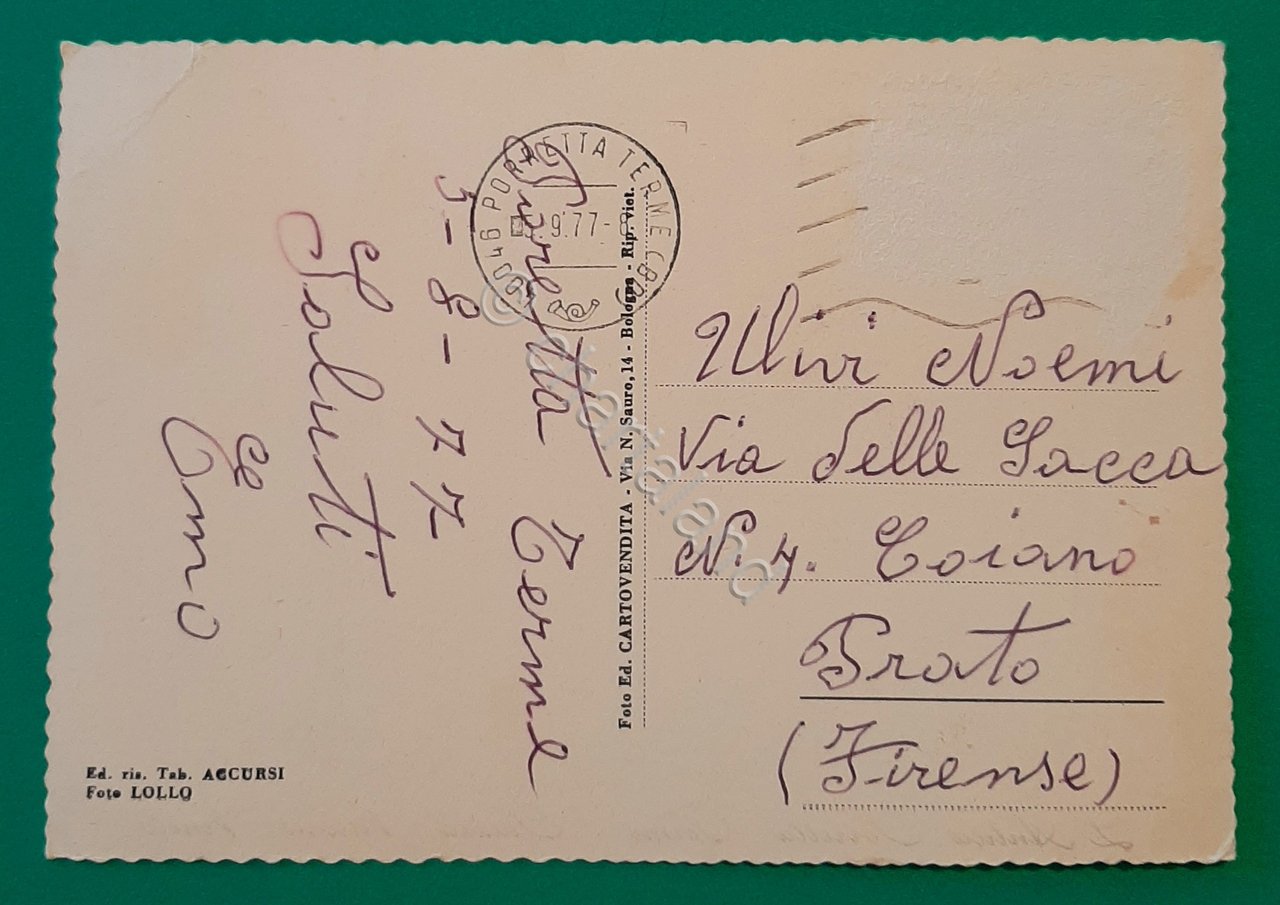 Porretta Terme
3-8-77
Saluti
e
Emo
40046 PORRETTA TERME (BO)
9.77-
Foto Ed. CARTOVENDITA - Via N. Sauro, 14 - Bologna - Rip. viet.
Ulivi Noemi
Via delle Sacca
N. 4. Coiano
Prato
(Firense)
Ed. ris. Tab. ACCURSI
Foto LOLLO
© cartaland